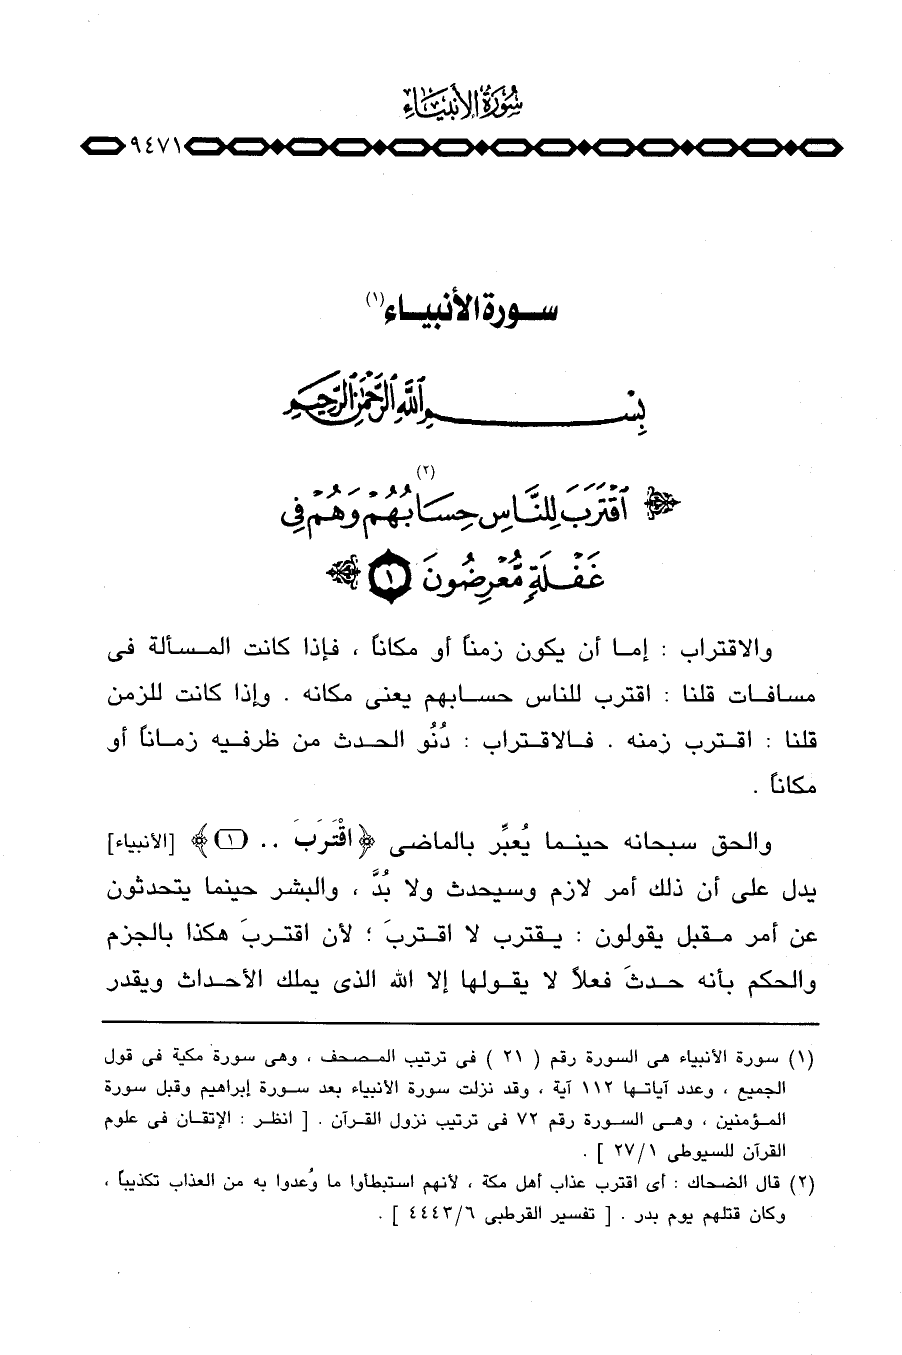 سُورَةُ الأَنبِيَاء
٩٤٧١
سورة الأنبياء (١)
بِسْمِ اللَّهِ الرَّحْمَٰنِ الرَّحِيمِ
(٢)
﴿ ٱقْتَرَبَ لِلنَّاسِ حِسَابُهُمْ وَهُمْ فِي
غَفْلَةٍ مُّعْرِضُونَ ١ ﴾
والاقتراب : إما أن يكون زمناً أو مكاناً ، فإذا كانت المسألة فى
مسافات قلنا : اقترب للناس حسابهم يعنى مكانه . وإذا كانت للزمن
قلنا : اقترب زمنه . فالاقتراب : دُنُو الحدث من ظرفيه زماناً أو
مكاناً .
والحق سبحانه حينما يُعبِّر بالماضى ﴿ اقْتَرَبَ .. (١) ﴾ [الأنبياء]
يدل على أن ذلك أمر لازم وسيحدث ولا بُدَّ ، والبشر حينما يتحدثون
عن أمر مقبل يقولون : يقترب لا اقتربَ ؛ لأن اقتربَ هكذا بالجزم
والحكم بأنه حدثَ فعلاً لا يقولها إلا الله الذى يملك الأحداث ويقدر
(١) سورة الأنبياء هى السورة رقم ( ٢١ ) فى ترتيب المصحف ، وهى سورة مكية فى قول
الجميع ، وعدد آياتها ١١٢ آية ، وقد نزلت سورة الأنبياء بعد سورة إبراهيم وقبل سورة
المؤمنين ، وهى السورة رقم ٧٢ فى ترتيب نزول القرآن . [ انظر : الإتقان فى علوم
القرآن للسيوطى ٢٧/١ ] .
(٢) قال الضحاك : أى اقترب عذاب أهل مكة ، لأنهم استبطأوا ما وُعدوا به من العذاب تكذيباً ،
وكان قتلهم يوم بدر . [ تفسير القرطبى ٤٤٤٣/٦ ] .